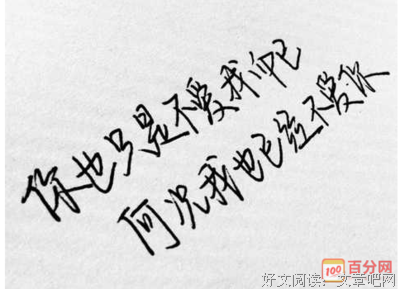 你也只是不爱我而已
何况我也已经不爱你
100 百分网
好文阅读：文章吧网